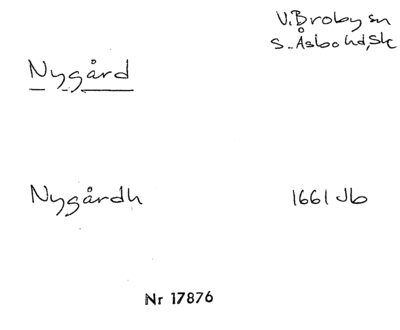 V. Broby sn
S. Åsbo hd, Sk
Nygård
Nygårdh 1661 Jb
Nr 17876